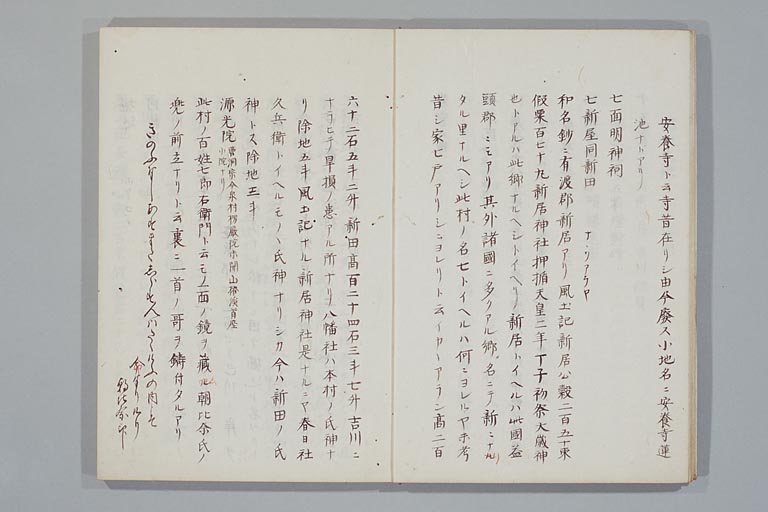 安養寺ト云寺昔在リシ由今廢ス小地名ニ安養寺蓮
池ナトアリ
七面明神祠
七新屋同新田 ナヽツアラヤ
和名鈔ニ有渡郡新居アリ風土記新居公穀二百五十束
假粟百七十九新居神社押楯天皇三年丁子初祭大歳神
也トアルハ此郷ナルヘシトイヘリ新居トイヘルハ此國益
頭郡ニミアリ其外諸國ニ多クアル郷名ニテ新ニナル
タル里ナルヘシ此村ノ名七トイヘルハ何ニヨレルヤ未考
昔シ家七戸アリシニヨレリト云イカヽアラン高二百
六十二石五斗二升新田高百二十四石三斗七升吉川ニ
ナラヒテ旱損ノ患アル所ナリ八幡社ハ本村ノ氏神ナ
リ除地五斗風土記ナル新居神社是ナルニヤ春日社
久兵衛トイヘルモノヽ氏神ナリシカ今ハ新田ノ氏
神トス除地三斗
源光院 曹洞宗今泉村楞嚴院末開山
小院ナリ
此村ノ百姓七郎右衛門ト云モノ一面ノ鏡ヲ藏ル朝比奈氏ノ
兜ノ前立ナリト云裏ニ一首ノ哥ヲ鑄付タルアリ